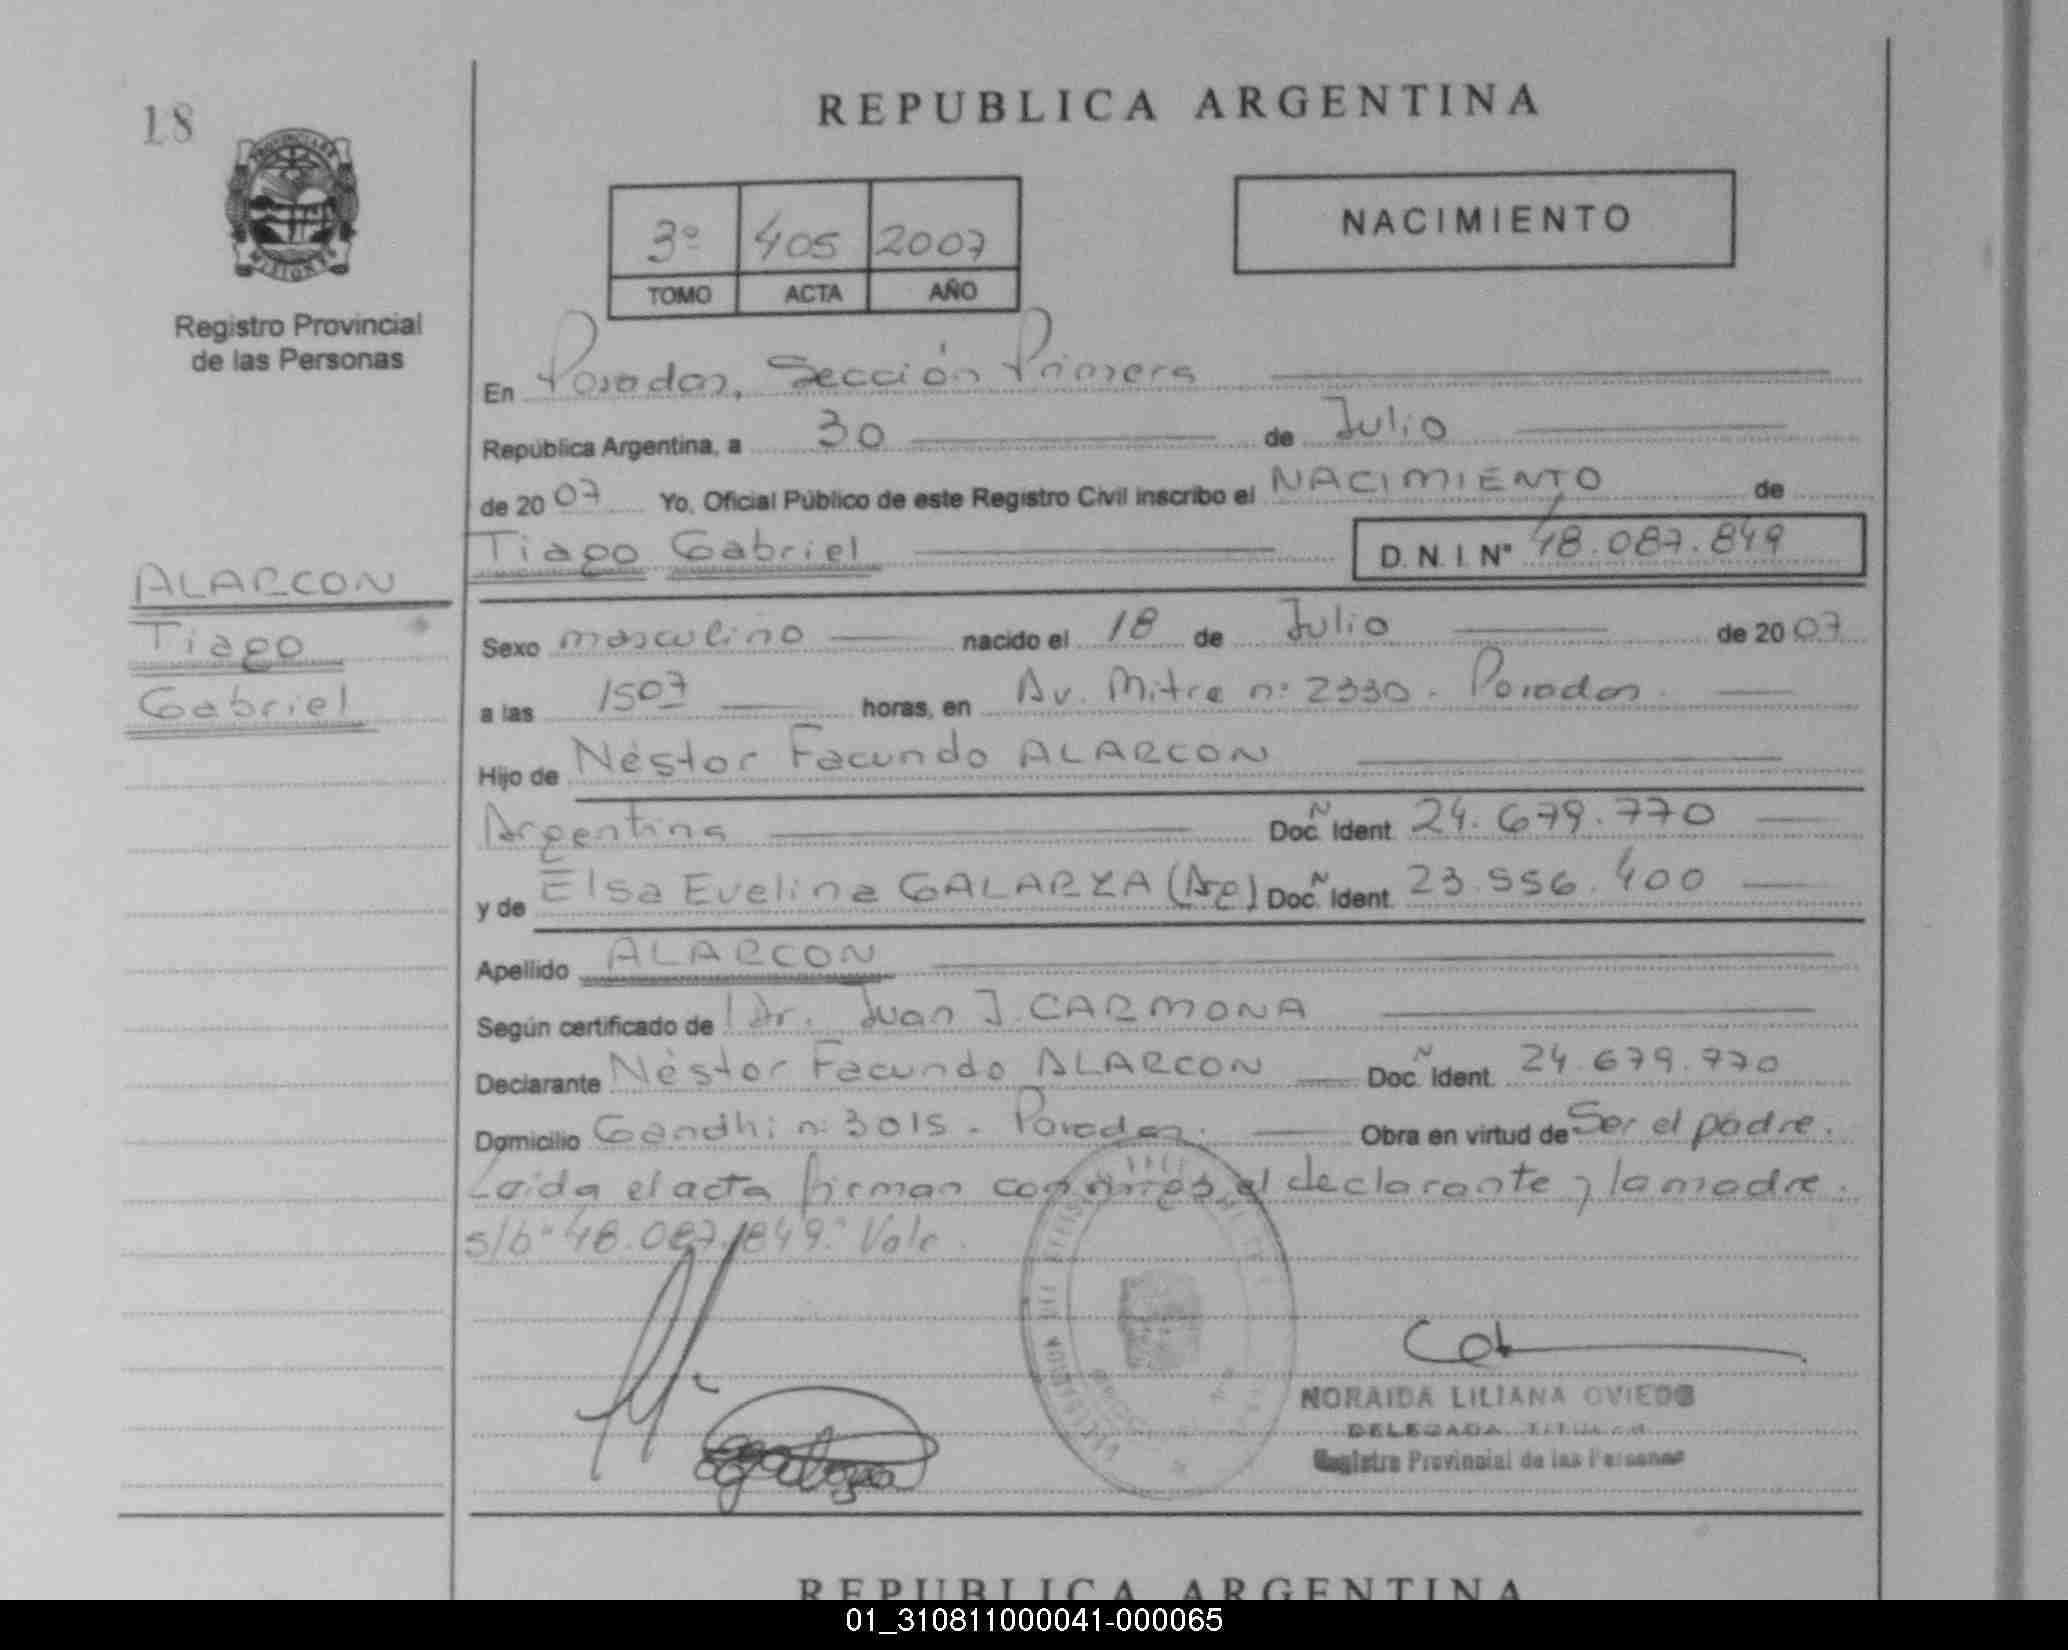 18
REPUBLICA ARGENTINA
PROVINCIA DE
MISIONES
Registro Provincial
de las Personas
3º 405 2007
TOMO ACTA AÑO
NACIMIENTO
En Posadas, Sección Primera
República Argentina, a 30 de Julio
de 2007 Yo, Oficial Público de este Registro Civil inscribo el NACIMIENTO de
Tiago Gabriel D.N.I. Nº 48.087.849
ALARCON
Tiago
Gabriel
Sexo masculino nacido el 18 de Julio de 2007
a las 1507 horas, en Av. Mitre nº 2330. Posadas.
Hijo de Néstor Facundo ALARCON
Argentina Doc. Ident. 24.679.770
y de Elsa Evelina GALARZA (Arg) Doc. Ident. 23.556.400
Apellido ALARCON
Según certificado de Dr. Juan J. CARMONA
Declarante Néstor Facundo ALARCON Doc. Ident. 24.679.770
Domicilio Gandhi nº 3015. Posadas. Obra en virtud de Ser el padre.
Leída el acta firman conmigo el declarante y la madre.
s/b "48.087.849" Vale.
NORAIDA LILIANA OVIEDO
DELEGADA TITULAR
Registro Provincial de las Personas
REPUBLICA ARGENTINA
01_310811000041-000065